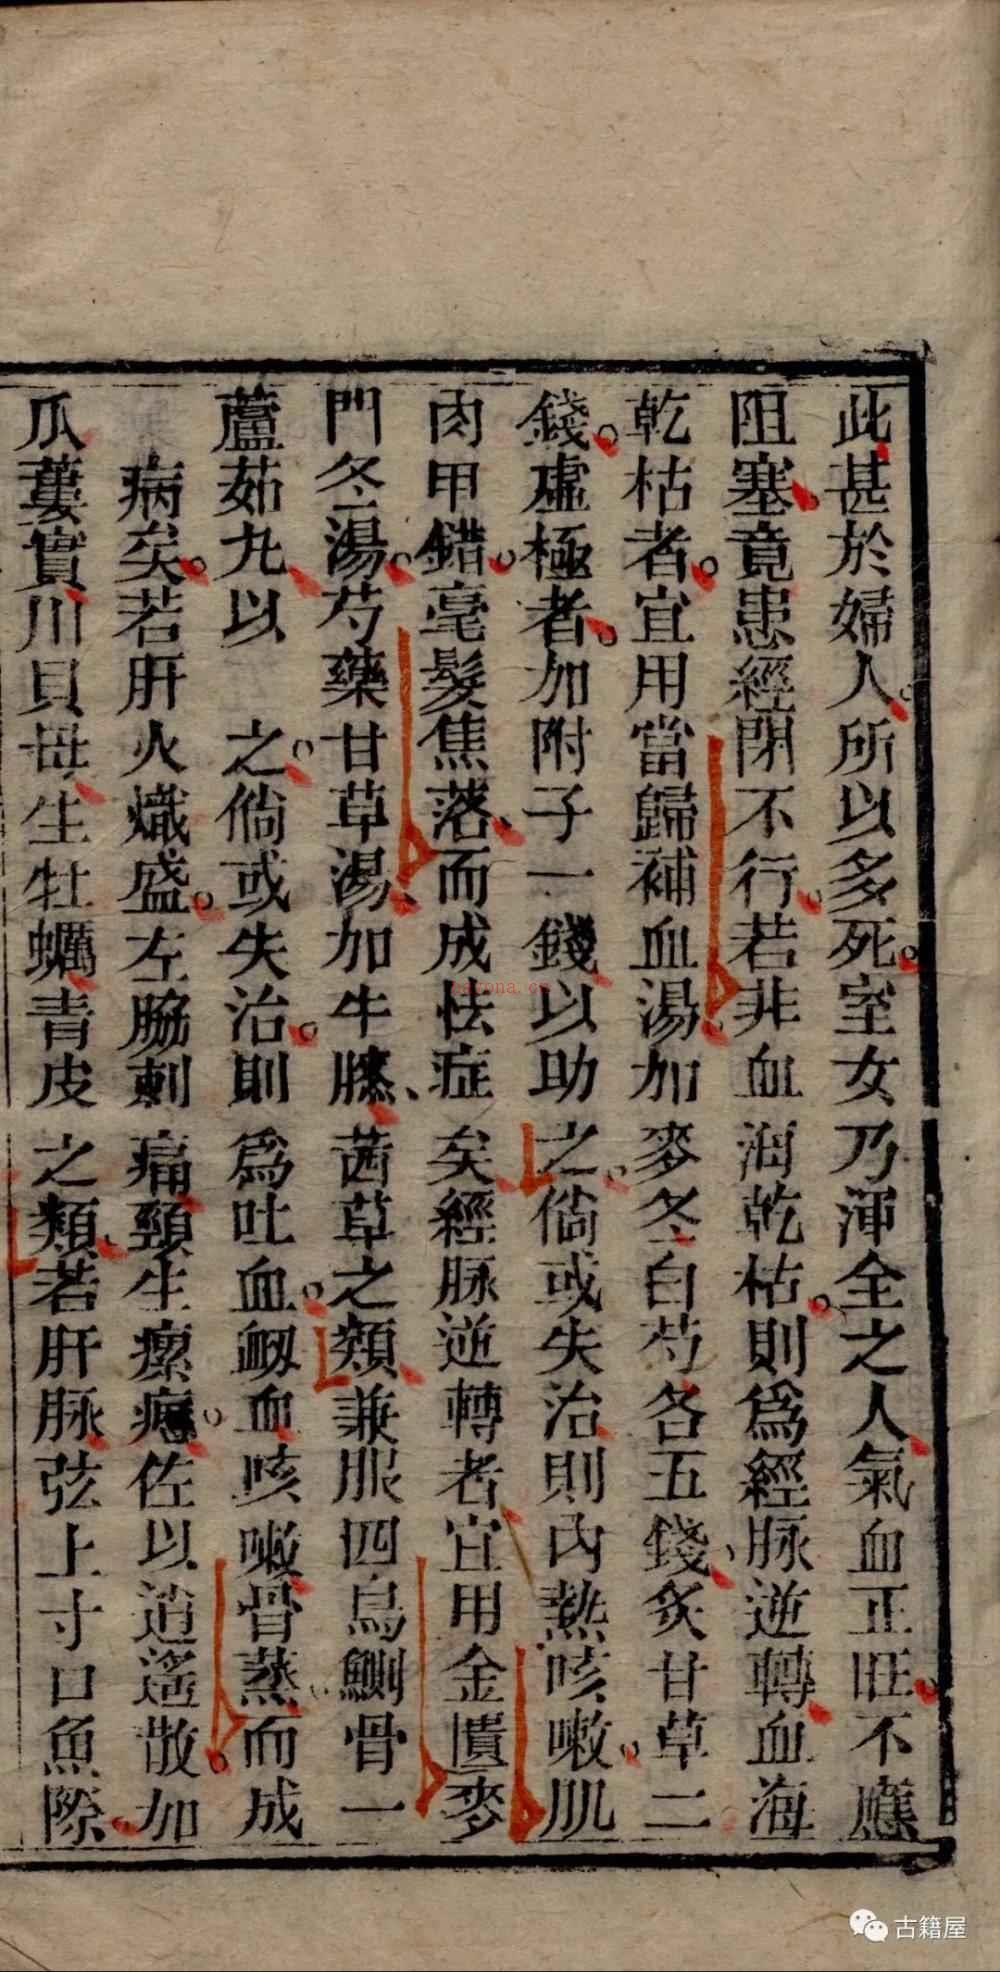 此甚於婦人所以多死室女乃渾全之人氣血正旺不應
阻塞竟患經閉不行若非血涸乾枯則爲經脉逆轉血海
乾枯者宜用當歸補血湯加麥冬白芍各五錢炙甘草二
錢虛極者加附子一錢以助之倘或失治則內熱咳嗽肌
肉甲錯毫髮焦落而成怯症矣經脉逆轉者宜用金匱麥
門冬湯芍藥甘草湯加牛膝茜草之類兼服四烏鰂骨一
蘆茹丸以之倘或失治則爲吐血衂血咳嗽骨蒸而成
病矣若肝火熾盛左脇刺痛頸生瘰癧佐以逍遙散加
瓜蔞實川貝母生牡蠣青皮之類若肝脉弦上寸口魚際
bayona.cc
古籍屋